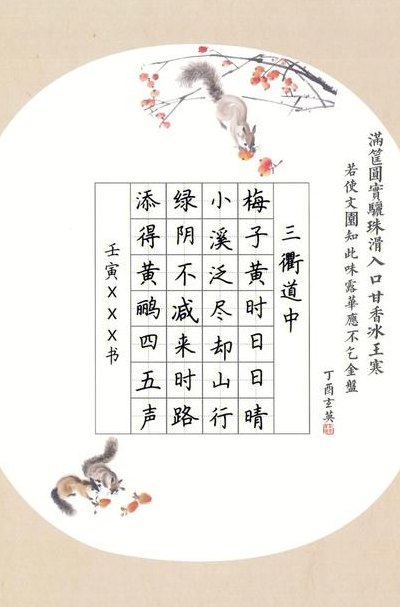 满筐圓實驪珠滑入口甘香冰玉寒
若使文園知此味露華應不乞金盤
丁酉玄英
三衢道中
梅子黄时日日晴
小溪泛尽却山行
绿阴不减来时路
添得黄鹂四五声
壬寅XXX书